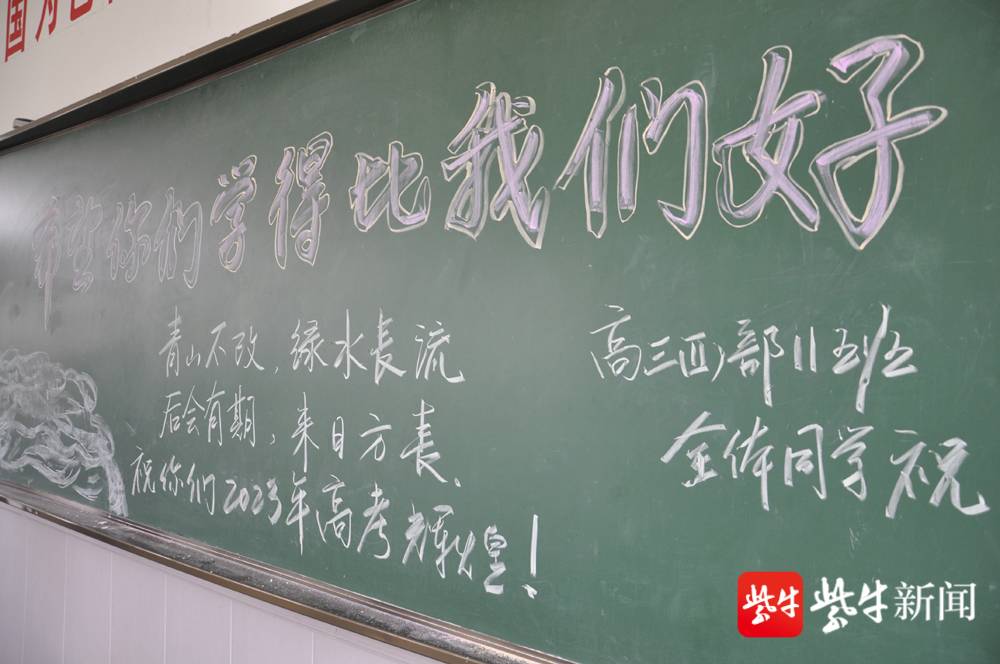 国为
希望你们学得比我们好
青山不改，绿水長流
后会有期，来日方長、
祝你们2023年高考辉煌！
高三四部11班
全体同学祝
紫牛 紫牛新闻